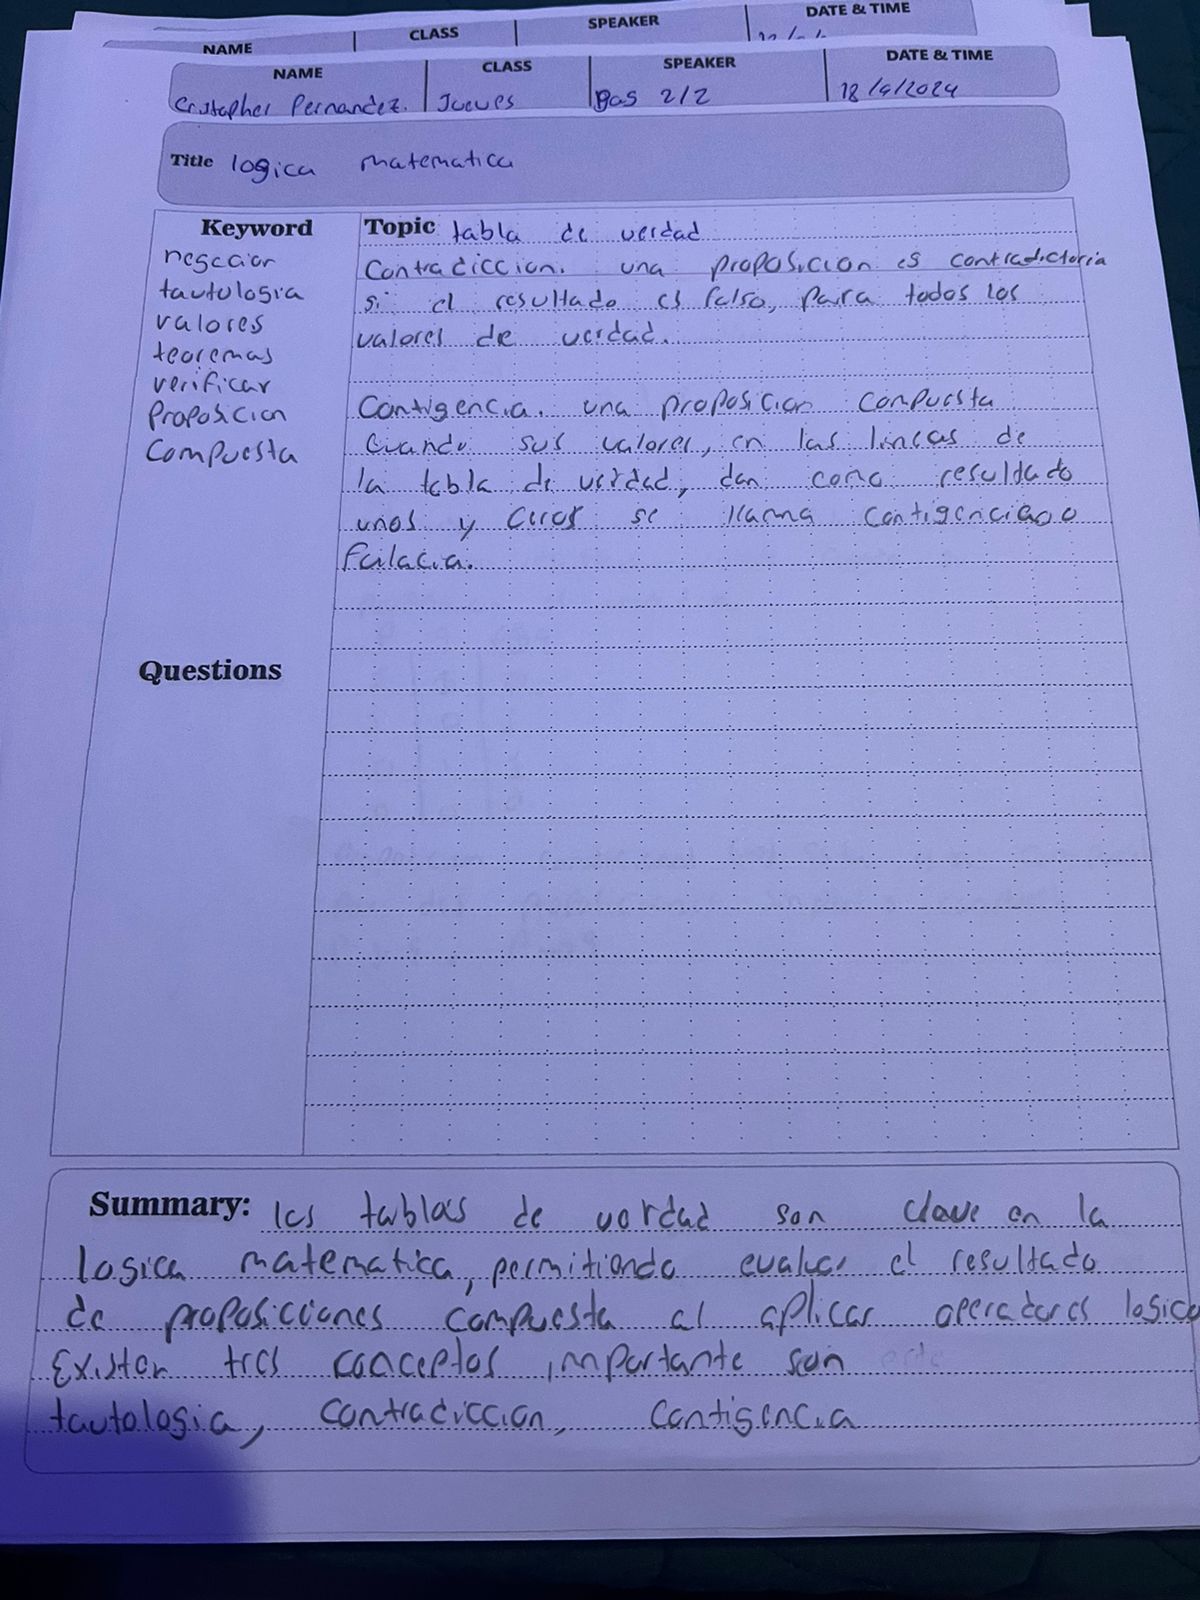 NAME CLASS SPEAKER DATE & TIME
NAME CLASS SPEAKER DATE & TIME
Cristopher Pernandez. Jueves Pas 2/2 18/4/2024
Title logica matematica
Keyword
negcaion
tautulogia
valores
teoremas
verificar
Proposicion
Compuesta
Topic tabla de verdad
Contradiccion. una proposicion es contradictoria
si el resultado es falso, para todos los
valores de verdad.
Contigencia. una proposicion compuesta
Cuando sus valores, en las lineas de
la tabla de verdad, dan como resultado
unos y ceros se llama contigencia o
falacia.
Questions
Summary: las tablas de verdad son clave en la
logica matematica, permitiendo evaluar el resultado
de proposiciones compuesta al aplicar operadores logico
Existen tres conceptos importante son
tautologia, contradiccion, contigencia